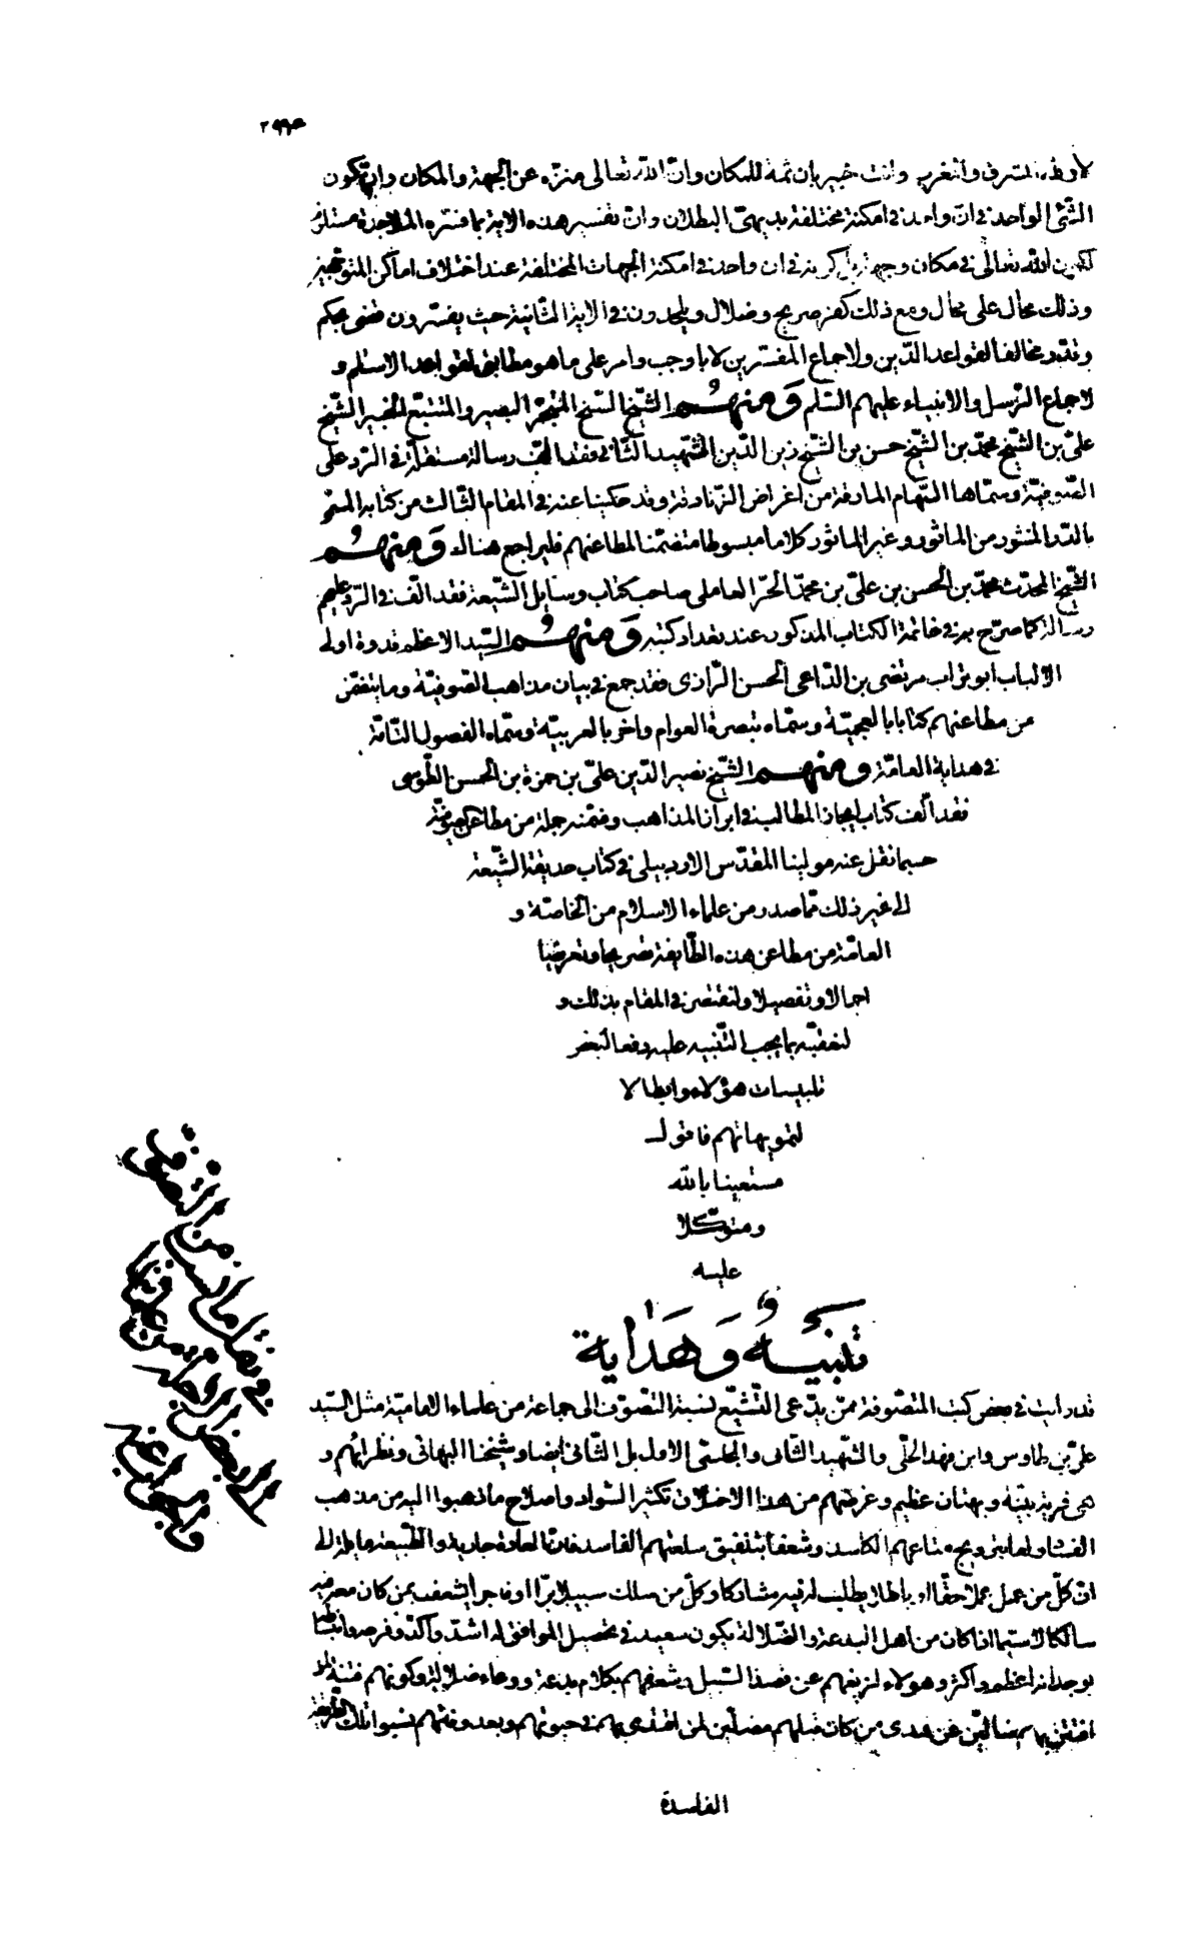 المشرق والمغرب وانت خبير بان ثمة للمكان وان الله تعالى منزّه عن الجهة والمكان وان تكون
الشّئ الواحد فى ان واحد فى امكنة مختلفة بديهىّ البطلان وانّ تفسير هذه الاية بما فسّره الملاحدة مستلزم
لكون الله تعالى فى مكان وجهة بل كونه فى ان واحد فى امكنة الجهات المختلفة عند اختلاف اماكن المتوجهين
وذلك محال على محال ومع ذلك كفر صريح وضلال ويلحدون فى الاية الثانية حيث يفسّرون قضى بحكم
وقدّر مخالفا لقواعد الدّين ولاجماع المفسّرين لا باوجب وامر على ما هو مطابق لقواعد الاسلام و
لاجماع الرّسل والانبياء عليهم السّلم وَ منهُم الشّيخ المتبحّر البصير والمتتبّع الخبير الشّيخ
علىّ بن الشّيخ محمّد بن الشّيخ حسن بن الشّيخ زين الدّين الشّهيد الثّانى فقد الّف رسالة مستقلّة فى الرّد على
الصّوفيّة وسمّاها السّهام المارقة من اغراض الزّنادقة وقد حكينا عنه فى المقام الثّالث من كتابه المسمّى
بالدّر المنثور من الماثور وغير الماثور كلاما مبسوطا متضمّنا لمطاعنهم فليراجع هناك وَ منهُم
الشّيخ المحدّث محمّد بن الحسن بن علىّ بن محمّد الحرّ العاملى صاحب كتاب وسايل الشّيعة فقد الّف فى الرّد عليهم
رسالة كما صرّح به فى خاتمة الكتاب المذكور عند تعداد كتبه وَ منهُم السّيد الاعظم قدوة اولى
الالباب ابو تراب مرتضى بن الدّاعى الحسن الرّازى فقد جمع فى بيان مذاهب الصّوفيّة وما يتضمّن
من مطاعنهم كتابا بالعجميّة وسمّاه تبصرة العوام واخر بالعربيّة وسمّاه الفصول التّامّة
فى هداية العامّة ومنهم الشّيخ نصير الدّين علىّ بن حمزة بن الحسن الطّوسى
فقد الّف كتاب ايجاز المطالب فى ابراز المذاهب وضمّنه جملة من مطاعن الصّوفيّة
حسبما نقل عنه مولينا المقدّس الاردبيلى فى كتاب حديقة الشّيعة
الى غير ذلك ممّا صدر من علماء الاسلام من الخاصّة و
العامّة من مطاعن هذه الطّايفة تصريحا وتعريضا
اجمالا وتفصيلا ولنقتصر فى المقام بذلك و
لنعقّبه بما يجب التّنبيه عليه دفعا لبعض
تلبيسات هؤلاء وابطالا
لتمويهاتهم فاقول
مستعينا بالله
ومتوكّلا
عليه
تنبيه وهداية
قد رايت فى بعض كتب المتصّوفة ممّن يدّعى التّشيّع لنسبة التّصوّف الى جماعة من علماء الاماميّة مثل السّيد
علىّ بن طاوس وابن فهد الحلّى والشّهيد الثّانى والمجلسى الاول بل الثّانى ايضا وشيخنا البهائى ونظرائهم و
هى فرية بيّنة وبهتان عظيم وغرضهم من هذا الاختلاق تكثير السّواد واصلاح ما ذهبوا اليه من مذهب
الفساد لترويج متاعهم الكاسد وشعفا بتلفيق سلعتهم الفاسد فانّ العادة جارية والطّبيعة مايلة الى
انّ كلّ من عمل عملا حقّا او باطلا يطلب له فيه مشاركا وكلّ من سلك سبيلا برّا او فاجرا يشعف بمن كان معه فيه
سالكا لا سيّما اذا كان من اهل البدعة والضّلالة يكون سعيه فى تحصيل الموافق له اشدّ وآكد وفرحه وانبساطه
بوجدانه اعظم واكثر وهولاء لزيغهم عن قصد السّبيل وشعفهم بكلام بدعة ودعاء ضلالة وكونهم فتنة لمن
افتتن بهم ضالّين عن هدى من كان قبلهم مضلّين لمن اقتدى بهم فى حيوتهم وبعد وفاتهم نسبوا تلك الطّريقة
الفاسدة